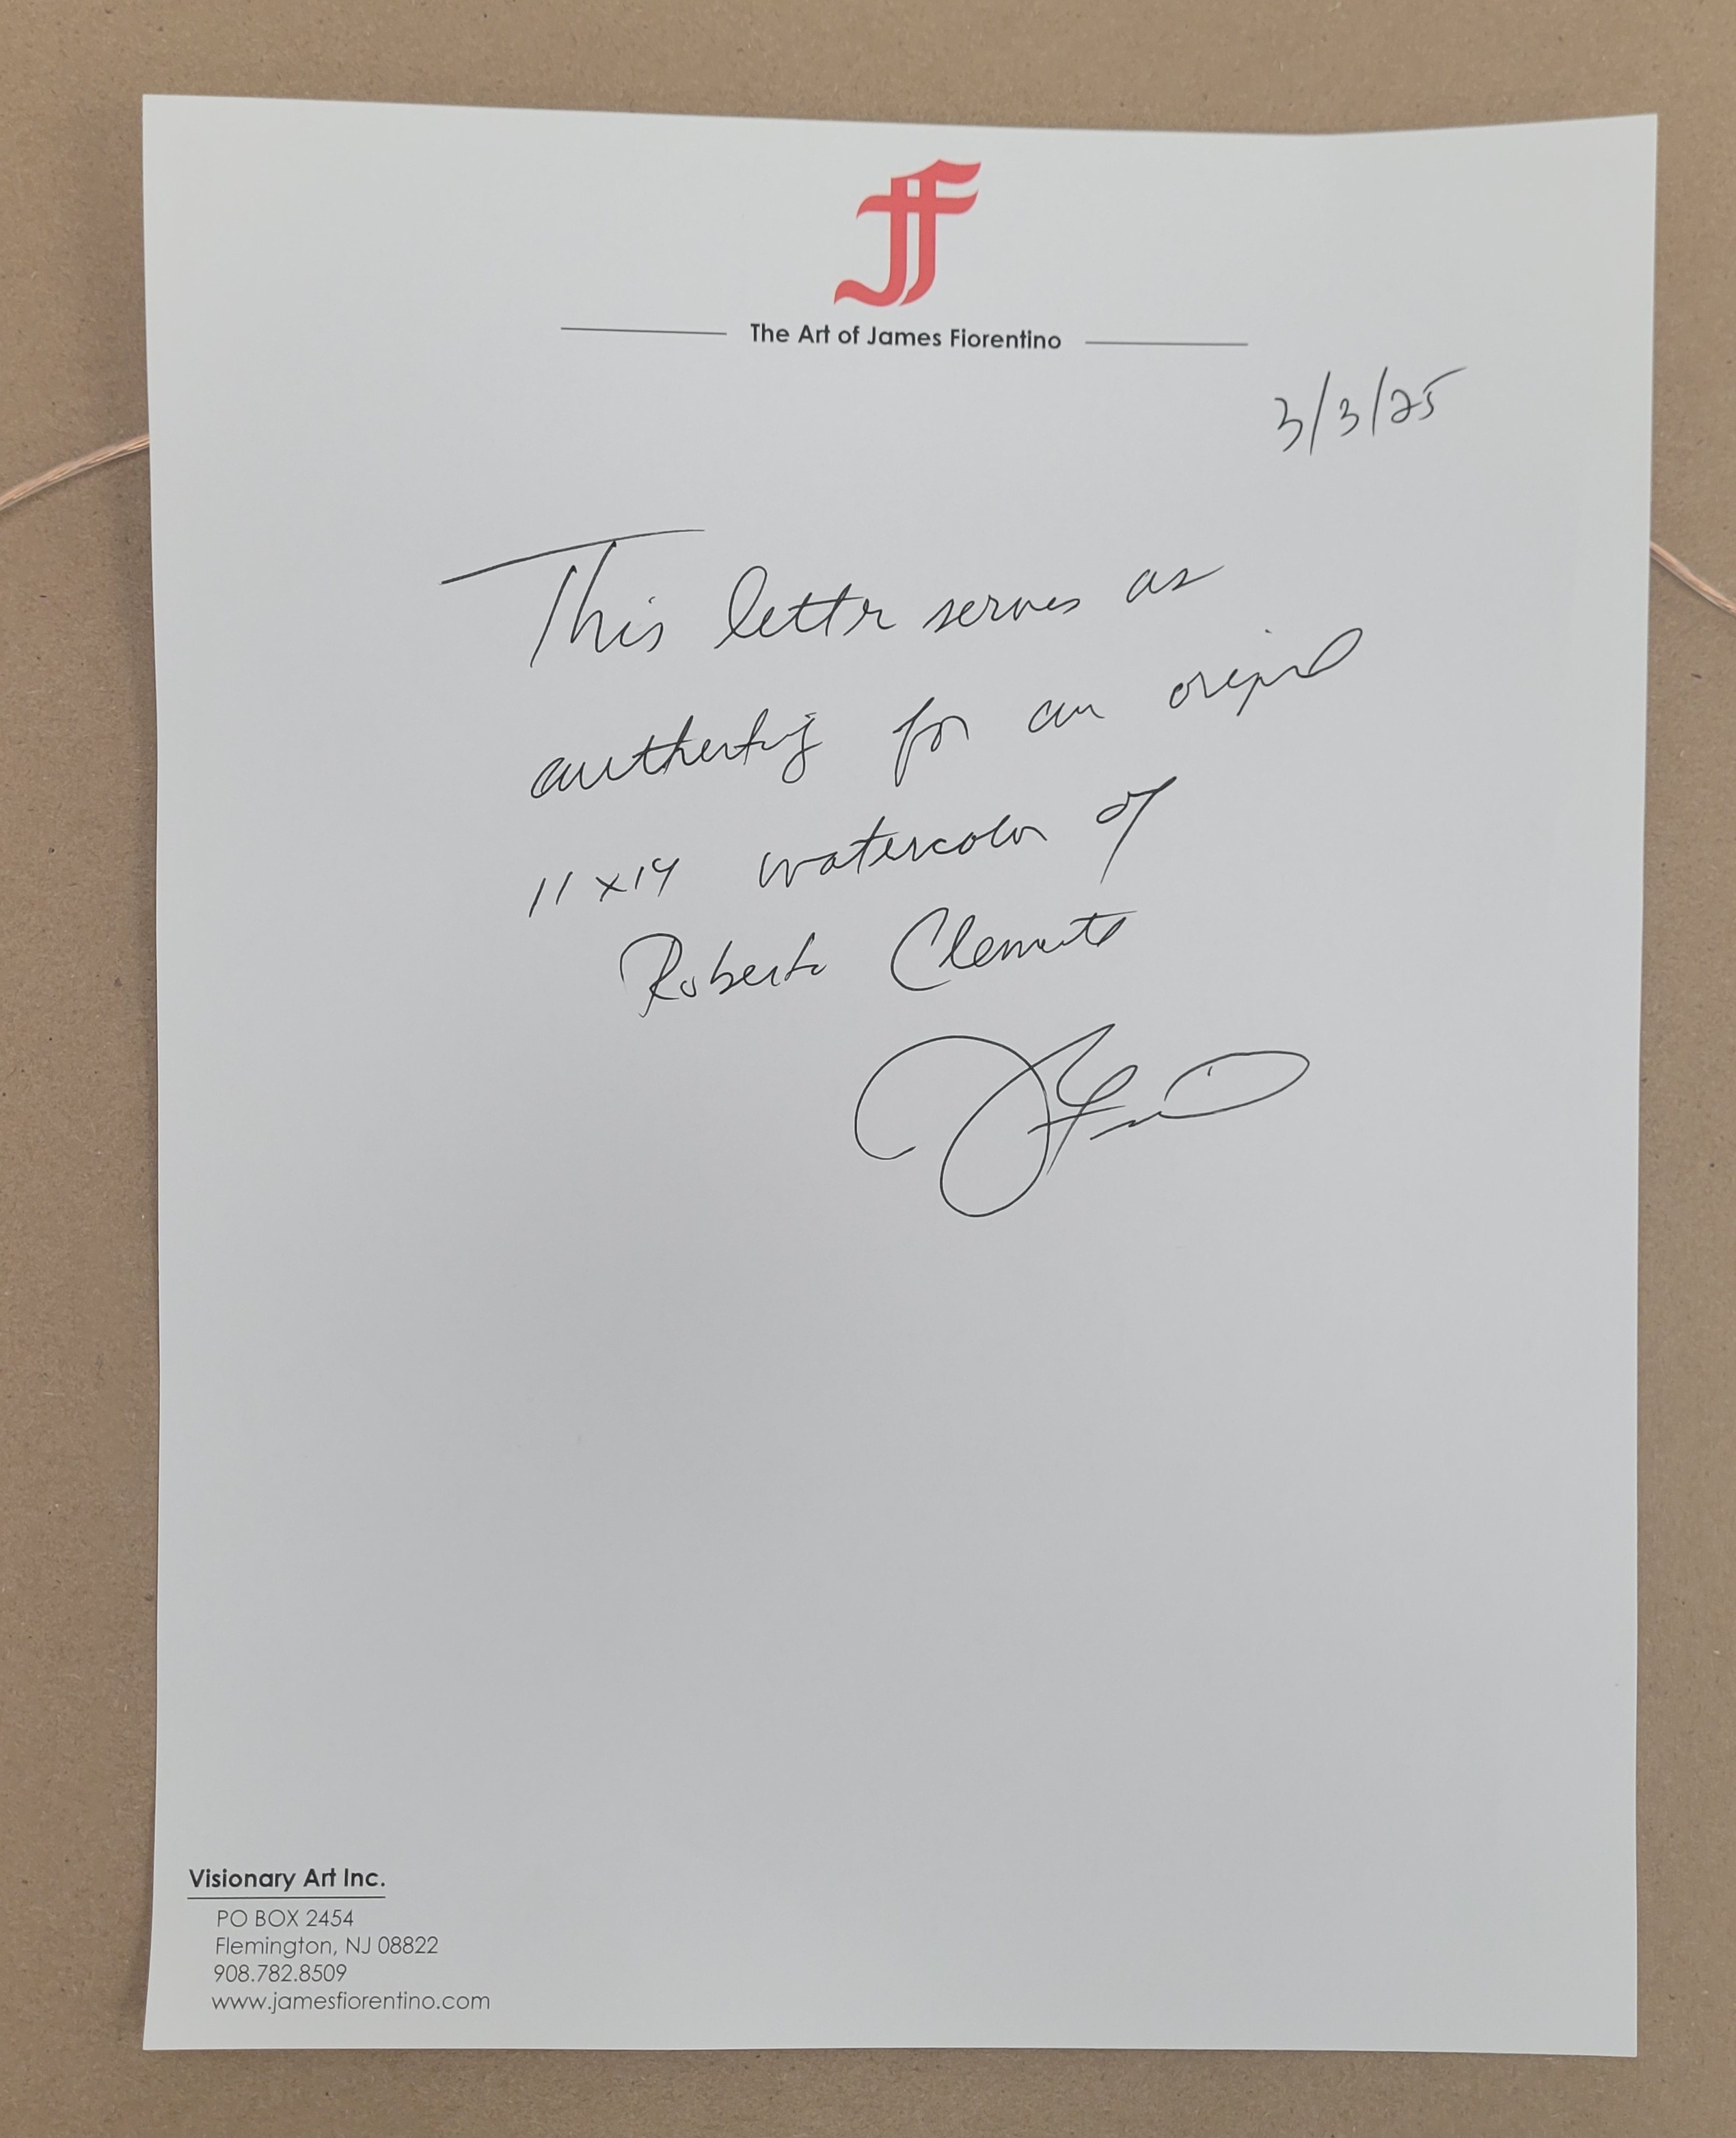 JF
The Art of James Fiorentino
3/3/25
This letter serves as
authenticity for an original
11 x 14 watercolor of
Roberto Clemente
Visionary Art Inc.
PO BOX 2454
Flemington, NJ 08822
908.782.8509
www.jamesfiorentino.com